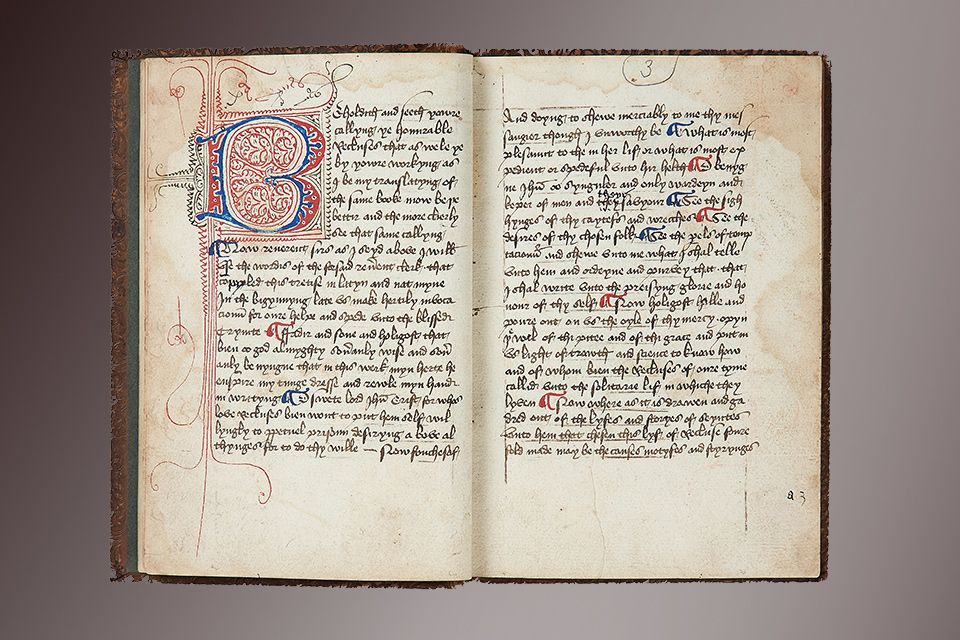 Beholdith and seeth yowre
callyng ye honurable
Recluses that as wele ye
by yowre worchyng as
I be my translatyng of
the same booke mow be þe
bettir and the more clerly
see that same callyng
Now reverent sirs as I seyd above I will
use the wordis of the forsaid reverent clerk that
compyled this tretise in latyn and nat myne
In the bigynnyng late us make hertily invoca
cioun for oure helpe and spede unto the blessed
Trynite Fadir and sone and holigost that
bien oo god almyghty
benigne that in this werk myn herte he
enspire my tunge dresse and rewle myn hand
in writyng O swete lord Jhu Crist for whos
love Recluses bien wont to put hem self wil
lyngly to perpetuel prisoun desiryng above al
thynges for to do thy wille Now fouchesaf
3
And doyng to shewe merciably to me thy mes
sangier though I unworthy be What is most
plesaunt to the in her lif or what is most ex
pedient or spedeful unto hir helth O benyg
ne Jhu oo synguler and only wardeyn and
keper of men and thow saveour See the sigh
hynges of thy caytefs and wrecches See the
desires of thy chosen folk See the pels of temp
tacioun and shewe unto me what I shal telle
unto hem and ordeyne and purvey that that
I shal write unto the preisyng glorie and ho
nour of thy self Now holigost falle and
poure out on us the oyle of thy mercy opyn
þe well of the pitee and of thi grace and put in
us light of trowth and science to know how
and of whom bien the Recluses of oure tyme
called unto the solitarie lif in whiche they
lyven Now where as it is drawen and ga
dred out of the lyfes and stories of seyntes
unto hem that chosen this lyf of Recluse foure
fold made may be the causes motyfes and styrynges
a 3